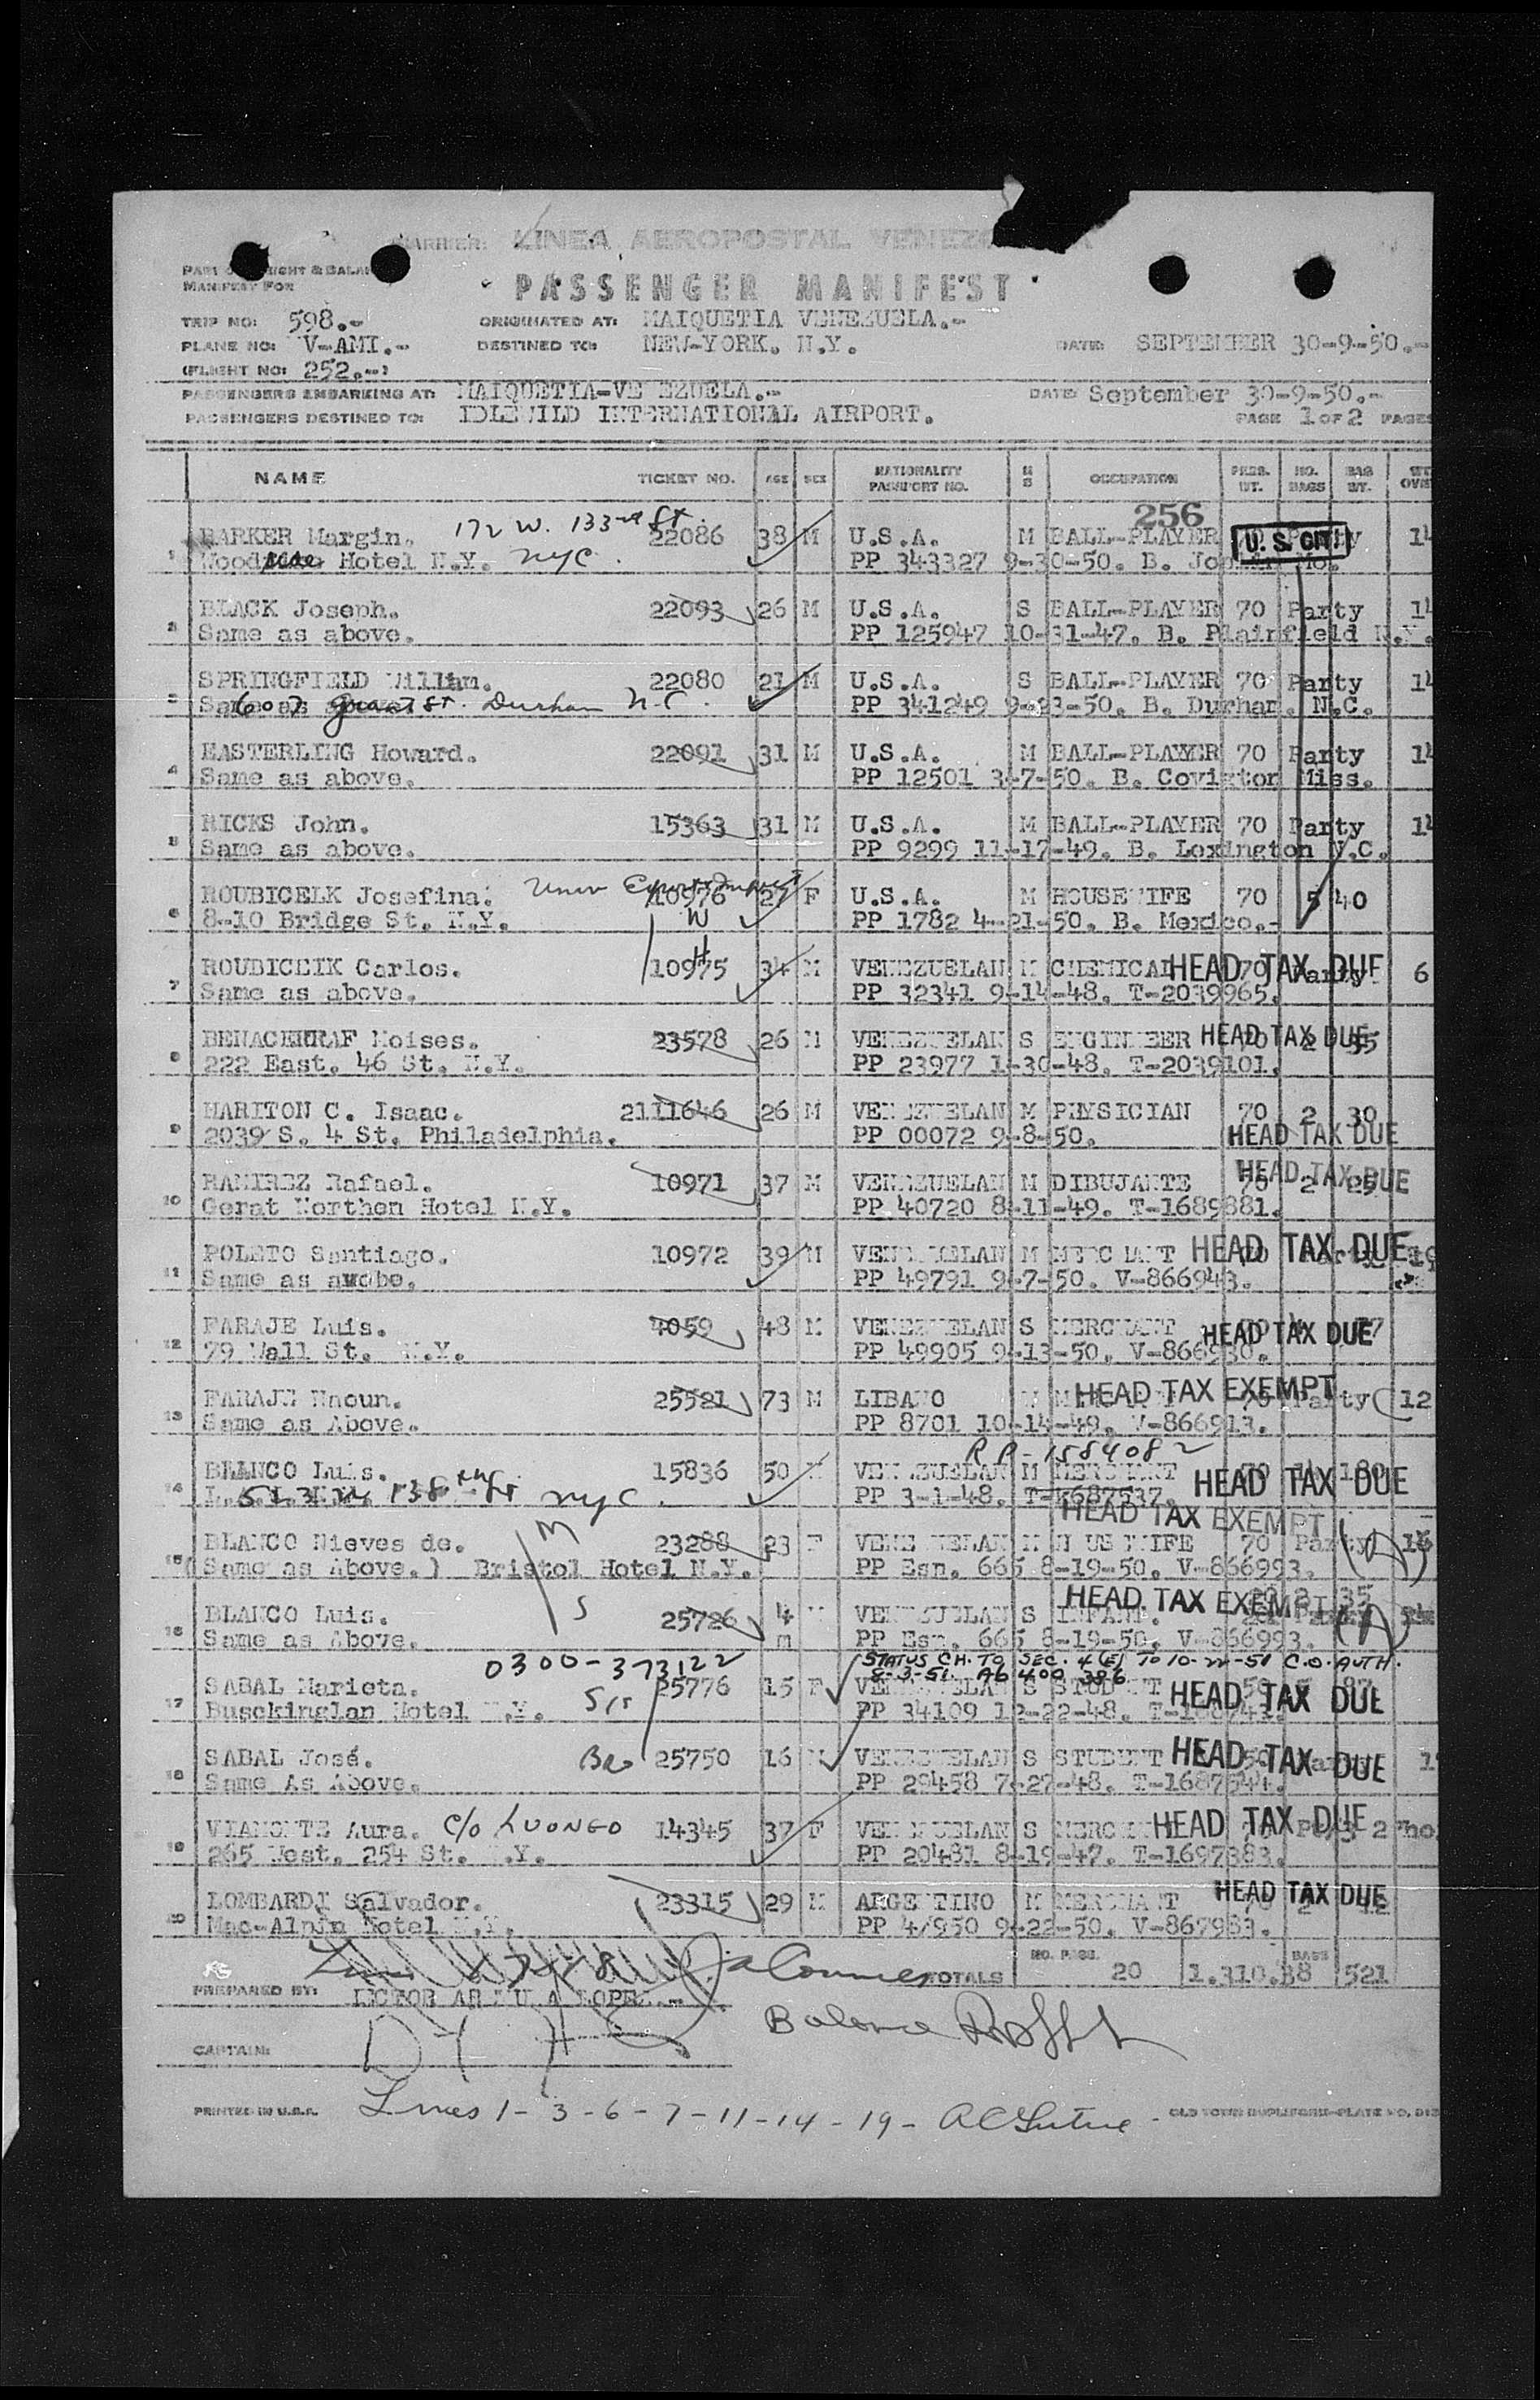 CARRIER: LINEA AEROPOSTAL
MANIFEST FOR
PASSENGER MANIFEST
TRIP NO: 598.- ORIGINATED AT: MAIQUETIA VENEZUELA.-
PLANE NO: V-AMI.- DESTINED TO: NEW-YORK. N.Y. DATE: SEPTEMBER 30-9-50.-
(FLIGHT NO: 252.-)
PASSENGERS EMBARKING AT: MAIQUETIA-VE EZUELA.- DATE: September 30-9-50.-
PASSENGERS DESTINED TO: IDLEWILD INTERNATIONAL AIRPORT. PAGE 1 OF 2 PAGES
NAME TICKET NO. AGE SEX NATIONALITY PASSPORT NO. M S OCCUPATION PASS. WT. NO. BAGS BAG WT.
256
172 W. 133rd St.
BARKER Margin. 22086 38 M U.S.A. M BALL-PLAYER U.S. CIT 14
1 Hotel N.Y. NYC. PP 343327 9-30-50. B.
BLACK Joseph. 22093 26 M U.S.A. S BALL-PLAYER 70 Party 14
2 Same as above. PP 125947 10-31-47. B. Plainfield N.Y.
SPRINGFIELD William. 22080 21 M U.S.A. S BALL-PLAYER 70 Party 14
3 607 Grant St. Durham N.C. PP 341249 9-23-50. B. Durham. N.C.
EASTERLING Howard. 22091 31 M U.S.A. M BALL-PLAYER 70 Party 14
4 Same as above. PP 12501 3-7-50. B. Covington Miss.
RICKS John. 15363 31 M U.S.A. M BALL-PLAYER 70 Party 14
5 Same as above. PP 9299 11-17-49. B. Lexington N.C.
ROUBICELK Josefina. 10976 27 F U.S.A. M HOUSEWIFE 70 5 40
6 8-10 Bridge St. N.Y. W PP 1782 4-21-50. B. Mexico.-
H
ROUBICEIK Carlos. 10975 34 M VENEZUELAN M CHEMICAL HEAD TAX DUE 6
7 Same as above. PP 32341 9-14-48. T-2039965.
BENACERRAF Moises. 23578 26 M VENEZUELAN S ENGINEER HEAD TAX DUE 35
8 222 East. 46 St. N.Y. PP 23977 1-30-48. T-2039101.
MARITON C. Isaac. 2111646 26 M VENEZUELAN M PHYSICIAN 70 2 30
9 2039 S. 4 St. Philadelphia. PP 00072 9-8-50. HEAD TAX DUE
RAMIREZ Rafael. 10971 37 M VENEZUELAN M DIBUJANTE HEAD TAX DUE
10 Gerat Northen Hotel N.Y. PP 40720 8-11-49. T-1689881.
POLETO Santiago. 10972 39 M VENEZUELAN M MERCHANT HEAD TAX DUE
11 Same as PP 49791 9-7-50. V-866943.
FARAJE Luis. 4059 48 M VENEZUELAN S MERCHANT HEAD TAX DUE
12 79 Wall St. N.Y. PP 49905 9-13-50. V-866930.
FARAJE Naoun. 25521 73 M LIBANO HEAD TAX EXEMPT Party 12
13 Same as Above. PP 8701 10-14-49. V-866913.
RP-1584082
BLANCO Luis. 15836 50 VENEZUELAN M MERCHANT HEAD TAX DUE
14 138th St NYC. PP 3-1-48. T-1687537.
HEAD TAX EXEMPT
M
BLANCO Nieves de. 23288 23 F VENEZUELAN M HOUSEWIFE 70 Party (A) 16
15 (Same as Above.) Bristol Hotel N.Y. PP Esn. 665 8-19-50. V-866993.
S
BLANCO Luis. 25726 4 M VENEZUELAN S INFANT. HEAD TAX EXEMPT 2 35
16 Same as Above. m PP Esn. 665 8-19-50. V-866993. (A)
0300-373122 STATUS CH. TO SEC. 4(E) TO 10-22-51 C.O. AUTH.
8-3-51. A6 400 386
SABAL Marieta. 25776 15 F VENEZUELAN S STUDENT HEAD TAX DUE
17 Busckinglan Hotel N.Y. Sis PP 34109 12-22-48.
SABAL José. Bro 25750 16 M VENEZUELAN S STUDENT HEAD TAX DUE
18 Same As Above. PP 29458 7-27-48. T-1687544.
VIAMONTE Aura. C/O LUONGO 14345 37 F VENEZUELAN S HEAD TAX DUE
19 265 West. 254 St. N.Y. PP 20481 8-19-47. T-1697383.
LOMBARDI Salvador. 23315 29 M ARGENTINO M MERCHANT HEAD TAX DUE
20 Mac-Alpin Hotel N.Y. PP 47950 9-22-50. V-867983.
NO. PASS. BAGS
TOTALS 20 1.310.38 521
PREPARED BY:
CAPTAIN:
PRINTED IN U.S.A. Lines 1-3-6-7-11-14-19-